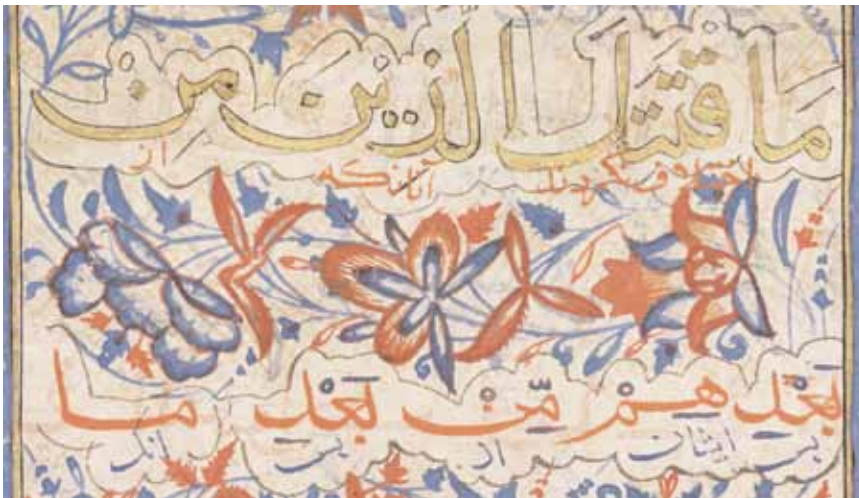 مَا قتَتَلَ الذينَ مِنْ
آنانکه از
بَعْدِ هِمْ مِّنْ بَعْدِ مَا
بس ایشان از بس انک